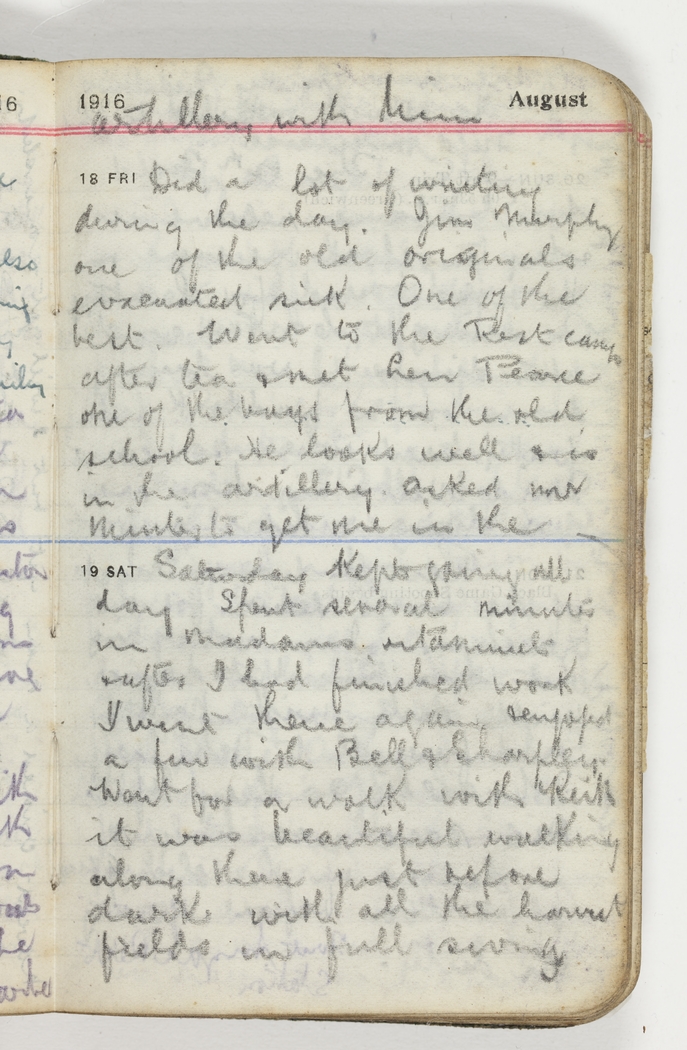 1916 August
artillery with him
18 FRI Did a lot of writing
during the day. Jim Murphy
one of the old originals
evacuated sick. One of the
best. Went to the Rest camp
after tea & met Len Pearce
one of the boys from the old
school. He looks well & is
in the artillery. asked
to get me in the
19 SAT Saturday Kept going all
day Spent several minutes
in Madams estaminet
& after I had finished work
I went there again & enjoyed
a few with Bell & Sharpley.
Went for a walk with Keith
it was beautiful walking
along there just before
dark with all the harvest
fields in full swing